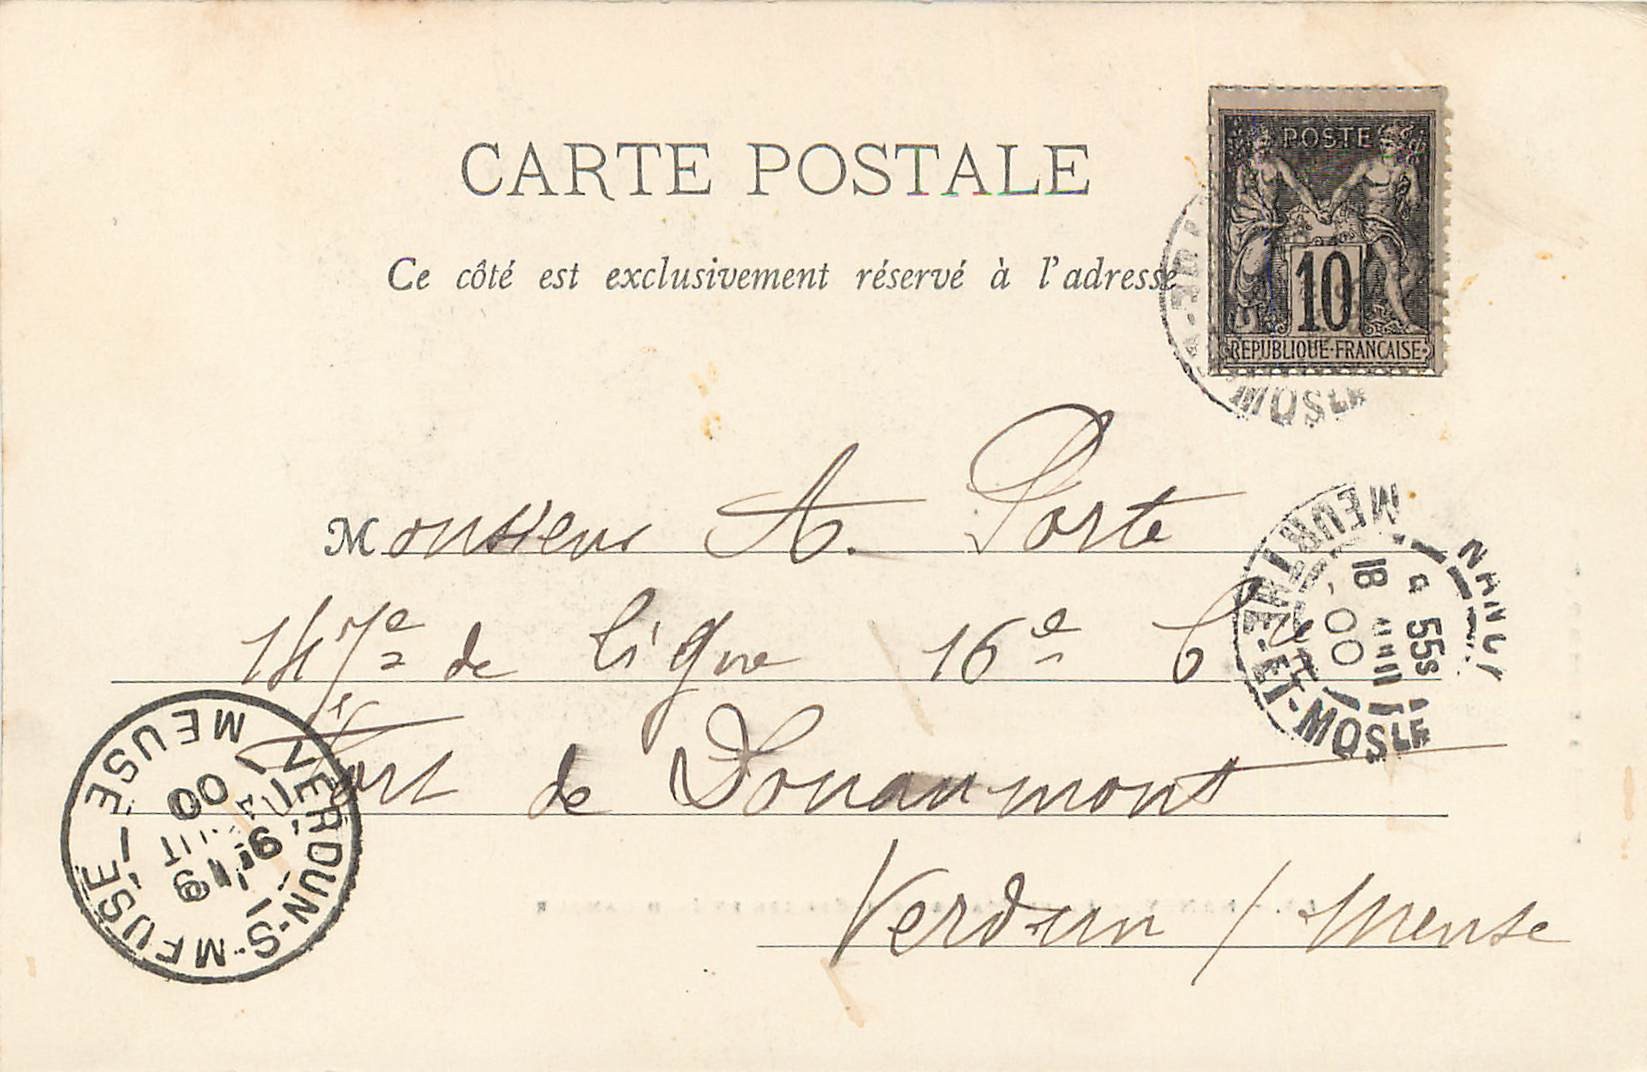 CARTE POSTALE
Ce côté est exclusivement réservé à l'adresse
POSTE
10
REPUBLIQUE·FRANCAISE
MOSLE
Monsieur A. Porte
147e de ligne 16e Cie
Fort de Douaumont
Verdun / Meuse
NANCY
MEURTHE-ET-MOSLE
4 55s
18
00
VERDUN-S-MEUSE
MEUSE
00